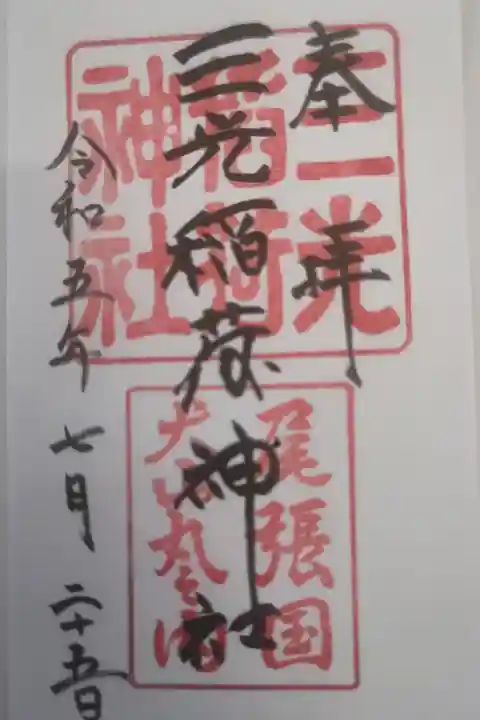 奉拝
三光稲荷神社
令和五年七月二十五日
三光
稲荷
神社
尾張国
犬山丸之内